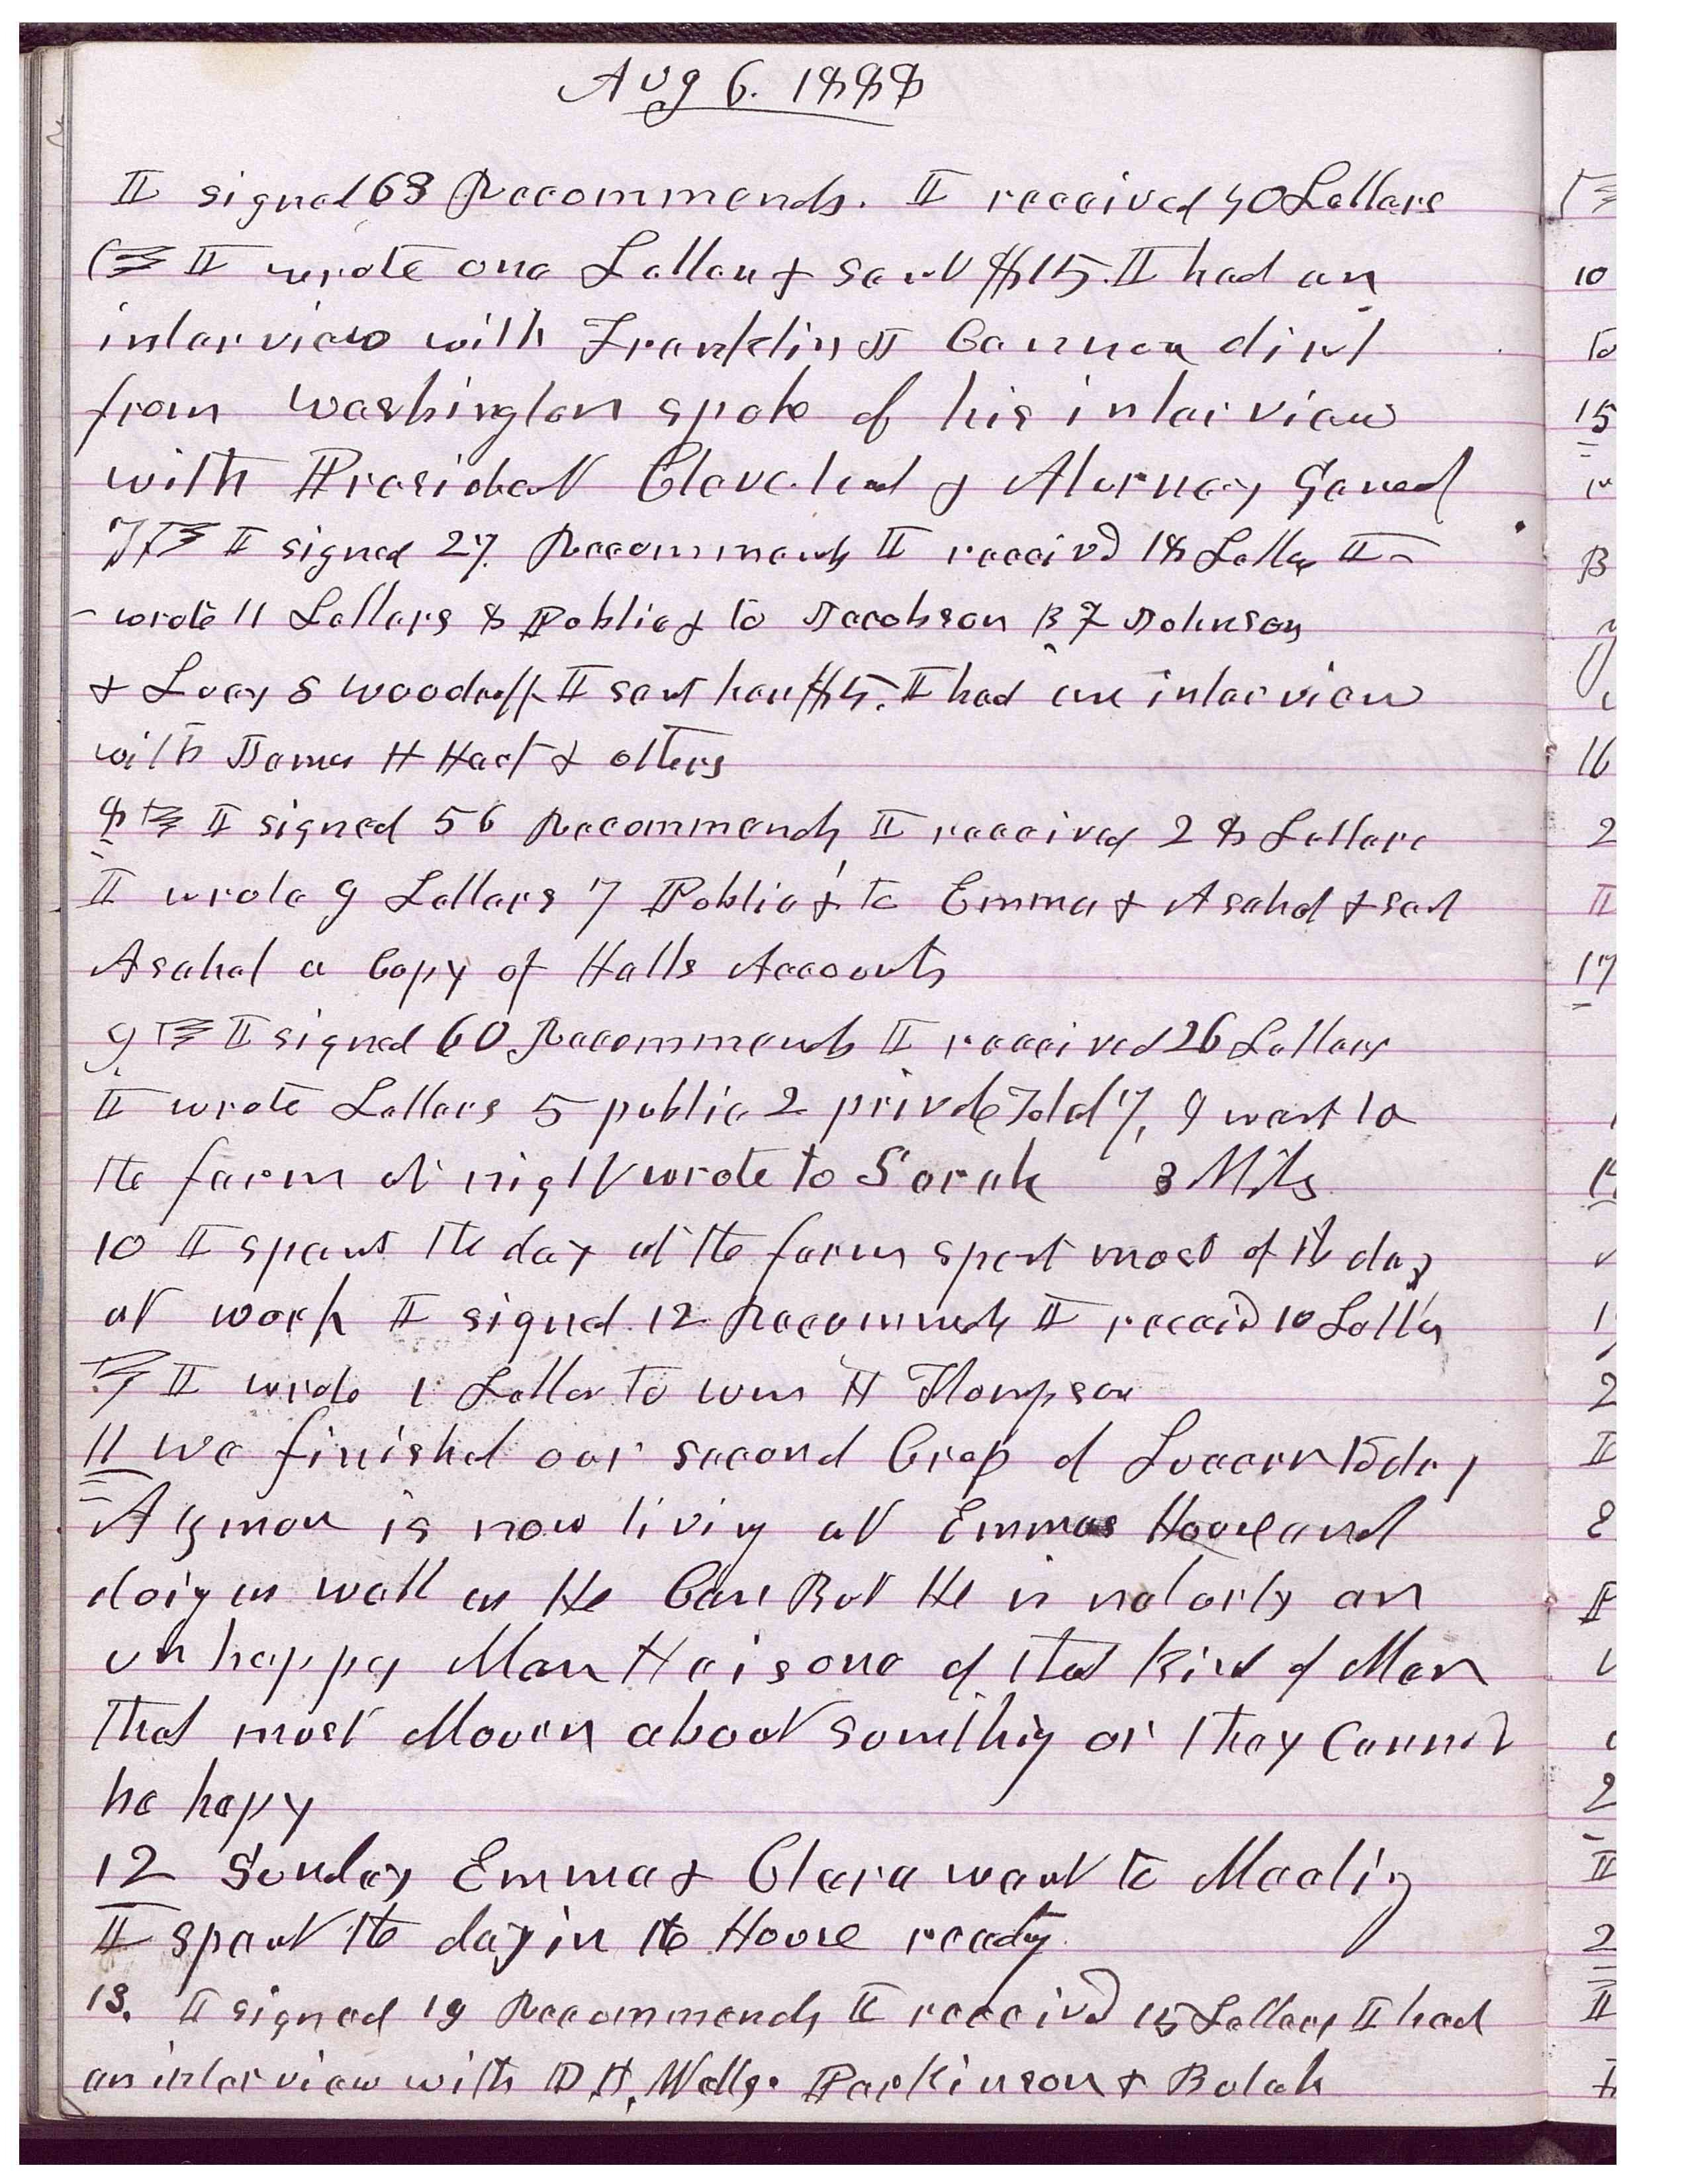 Aug 6. 1888
I signed 63 Recommends. I received 40 Letters
I wrote one Letter & sent $15. I had an
interview with Franklin I Cannon dirt
from Washington spoke of his interview
with President Cleveland & Aturney Genel
7 I signed 27 Recommends I receivd 18 Letters I
wrote 11 Letters 8 Public & to Jacobson B F Johnson
& Lucy S Woodruff I sent her $5. I had an interview
with James H Hart & others
8 I signed 56 Recommends I received 28 Letters
I wrote 9 Letters 7 Public & to Emma & Asahel & sent
Asahel a Copy of Halls Accounts
9 I signed 60 Recommends I received 26 Letters
I wrote Letters 5 public 2 privte Total 7, I went to
the farm at night wrote to Sarah 3 Mils
10 I spent the day at the farm spent most of the day
at work I signed 12 Recommends I receid 10 Letters
I wrote 1 Letter to Wm H Thompson
11 We finished our second Crop of Lucern today
Azmon is now living at Emmas House and
doing as well as He Can But He is naturly an
unhappy Man He is one of that kind of Men
That must Mourn about somthing or they Cannot
be hapy
12 Sunday Emma & Clara went to Meeting
I spent the day in the House reading
13. I signed 19 Recommends I receivd 15 Letters I had
an interview with D H. Wells. Parkinson &
10
15
B
16
2
I
17
2